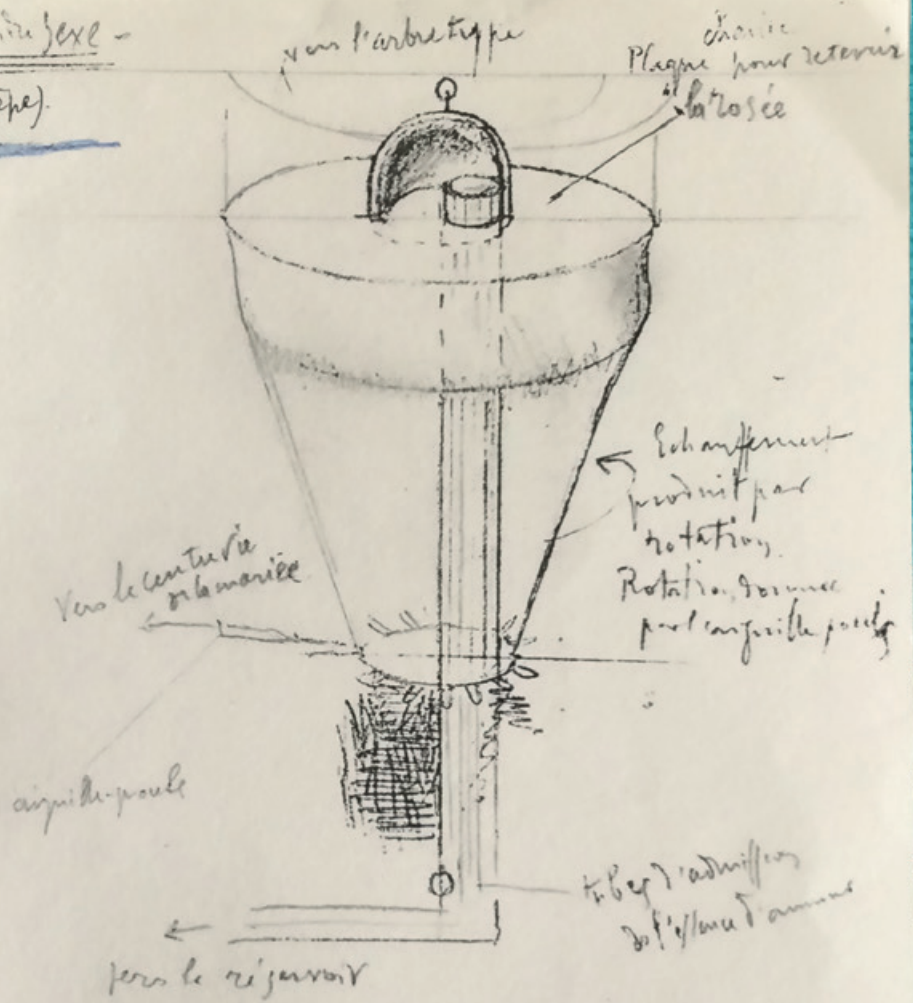 dre Sexe -
êpe).
vers l'arbre type
Plaque pour retenir
la rosée
Echauffement
produit par
rotation.
Rotation donnée
par l'aiguille pouls
Vers le centre vie
de la mariée
aiguille-pouls
tubes d'admission
de l'essence d'amour
vers le réservoir